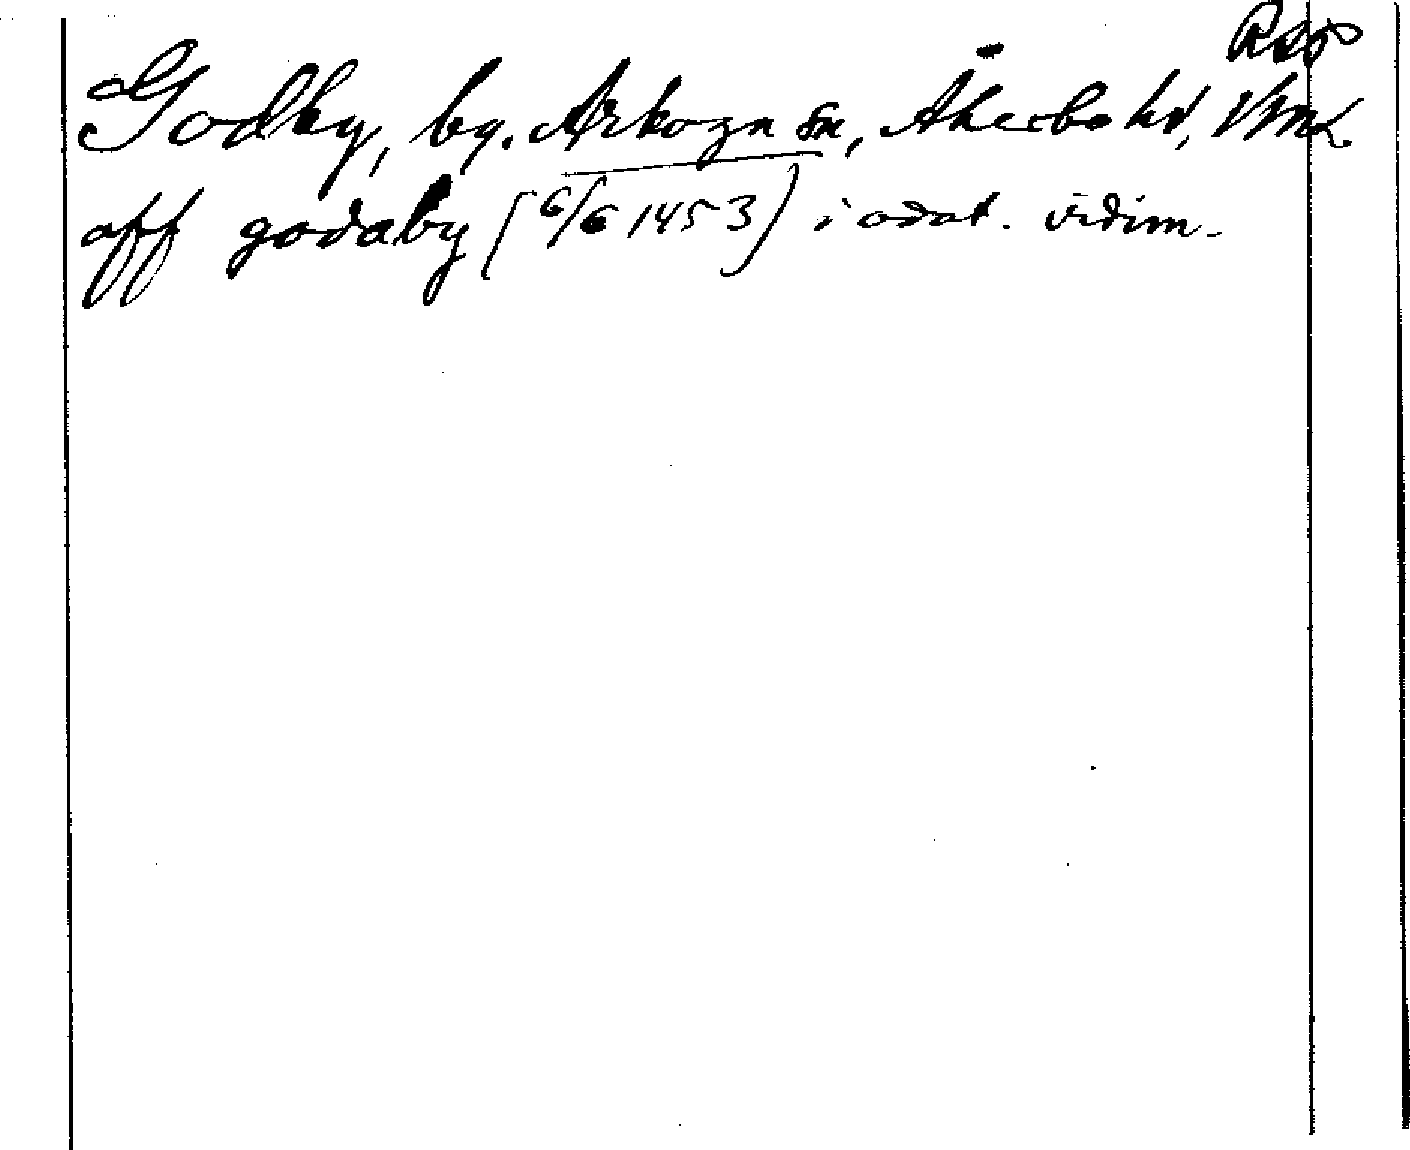 RAp
Godby, by. Årkozn sn, Åkerbo hd, Vml
aff godaby (6/6 1453) i odat. vidim.